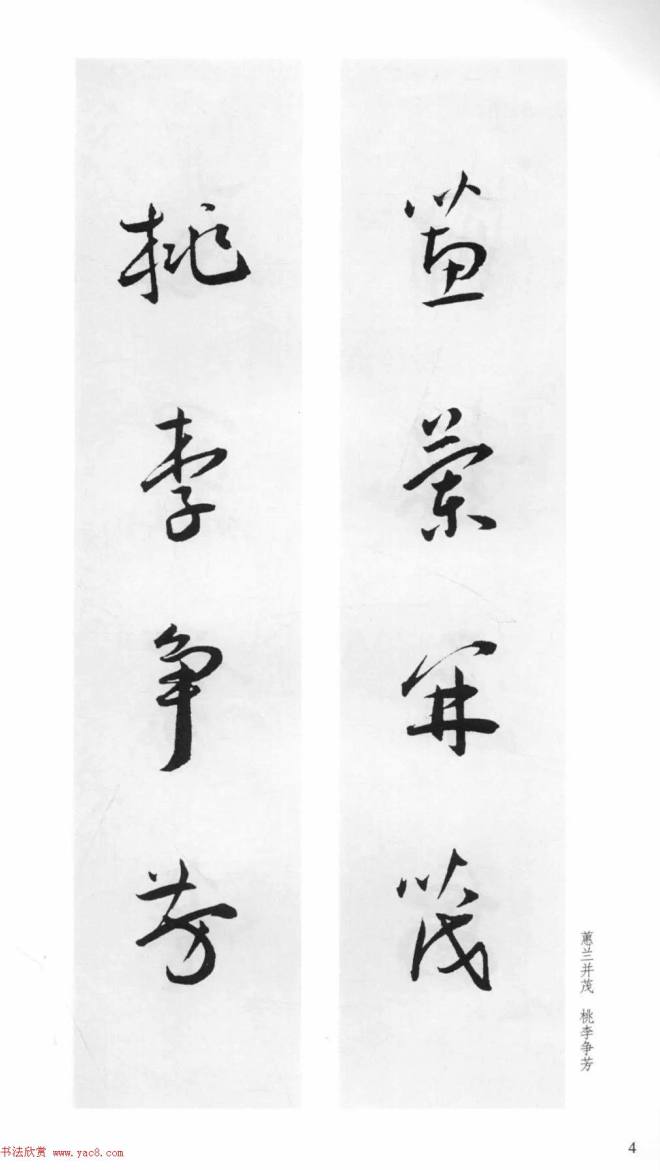 蕙兰并茂
桃李争芳
蕙兰并茂 桃李争芳
4
书法欣赏 www.yac8.com